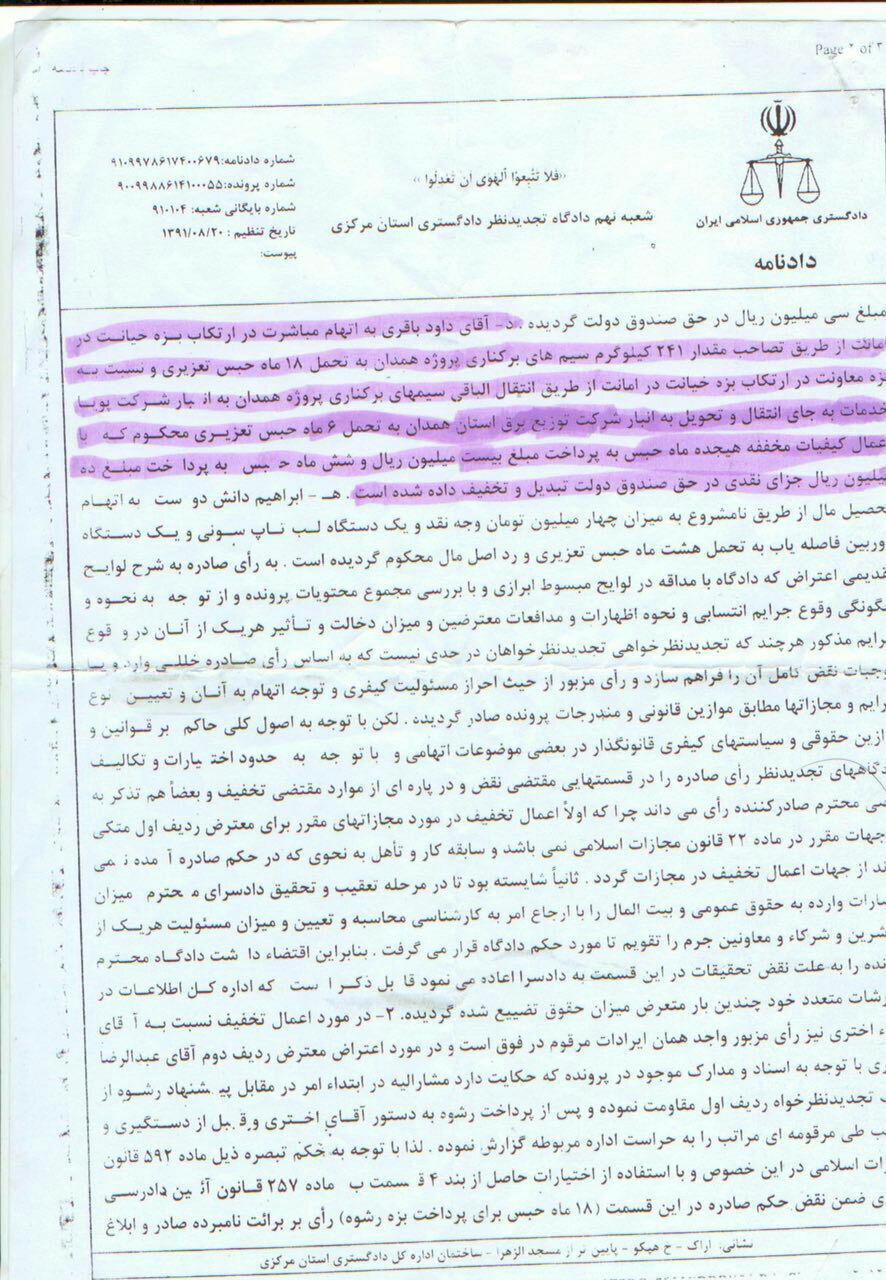 Page ۲ of ۳
دادگستری جمهوری اسلامی ایران
دادنامه
«فلا تتبعوا الهوی ان تعدلوا»
شعبه نهم دادگاه تجدیدنظر دادگستری استان مرکزی
شماره دادنامه:۹۱۰۹۹۷۸۶۱۷۴۰۰۶۷۹
شماره پرونده:۹۰۰۹۹۸۸۶۱۴۱۰۰۰۵۵
شماره بایگانی شعبه: ۹۱۰۱۰۴
تاریخ تنظیم : ۱۳۹۱/۰۸/۲۰
پیوست:
مبلغ سی میلیون ریال در حق صندوق دولت گردیده . د- آقای داود باقری به اتهام مباشرت در ارتکاب بزه خیانت در
امانت از طریق تصاحب مقدار ۲۴۱ کیلوگرم سیم های برکناری پروژه همدان به تحمل ۱۸ ماه حبس تعزیری و نسبت به
بزه معاونت در ارتکاب بزه خیانت در امانت از طریق انتقال الباقی سیمهای برکناری پروژه همدان به انبار شرکت پویا
خدمات به جای انتقال و تحویل به انبار شرکت توزیع برق استان همدان به تحمل ۶ ماه حبس تعزیری محکوم که با
عمال کیفیات مخففه هیجده ماه حبس به پرداخت مبلغ بیست میلیون ریال و شش ماه حبس به پرداخت مبلغ ده
میلیون ریال جزای نقدی در حق صندوق دولت تبدیل و تخفیف داده شده است . هـ - ابراهیم دانش دوست به اتهام
تحصیل مال از طریق نامشروع به میزان چهار میلیون تومان وجه نقد و یک دستگاه لب تاپ سونی و یک دستگاه
وربین فاصله یاب به تحمل هشت ماه حبس تعزیری و رد اصل مال محکوم گردیده است . به رأی صادره به شرح لوایح
قدیمی اعتراض که دادگاه با مداقه در لوایح مبسوط ابرازی و با بررسی مجموع محتویات پرونده و از توجه به نحوه و
گونگی وقوع جرایم انتسابی و نحوه اظهارات و مدافعات معترضین و میزان دخالت و تأثیر هریک از آنان در وقوع
رایم مذکور هرچند که تجدیدنظرخواهی تجدیدنظرخواهان در حدی نیست که به اساس رأی صادره خللی وارد و یا
وجبات نقض کامل آن را فراهم سازد و رأی مزبور از حیث احراز مسئولیت کیفری و توجه اتهام به آنان و تعیین نوع
رایم و مجازاتها مطابق موازین قانونی و مندرجات پرونده صادر گردیده . لکن با توجه به اصول کلی حاکم بر قوانین و
ازین حقوقی و سیاستهای کیفری قانونگذار در بعضی موضوعات اتهامی و با توجه به حدود اختیارات و تکالیف
دگاههای تجدیدنظر رأی صادره را در قسمتهایی مقتضی نقض و در پاره ای از موارد مقتضی تخفیف و بعضاً هم تذکر به
سی محترم صادرکننده رأی می داند چرا که اولاً اعمال تخفیف در مورد مجازاتهای مقرر برای معترض ردیف اول متکی
جهات مقرر در ماده ۲۲ قانون مجازات اسلامی نمی باشد و سابقه کار و تأهل به نحوی که در حکم صادره آمده نمی
ند از جهات اعمال تخفیف در مجازات گردد . ثانیاً شایسته بود تا در مرحله تعقیب و تحقیق دادسرای محترم میزان
سارات وارده به حقوق عمومی و بیت المال را با ارجاع امر به کارشناسی محاسبه و تعیین و میزان مسئولیت هریک از
شرین و شرکاء و معاونین جرم را تقویم تا مورد حکم دادگاه قرار می گرفت . بنابراین اقتضاء داشت دادگاه محترم
نده را به علت نقض تحقیقات در این قسمت به دادسرا اعاده می نمود قابل ذکر است که اداره کل اطلاعات در
رشات متعدد خود چندین بار متعرض میزان حقوق تضییع شده گردیده. ۲- در مورد اعمال تخفیف نسبت به آقای
ء اختری نیز رأی مزبور واجد همان ایرادات مرقوم در فوق است و در مورد اعتراض معترض ردیف دوم آقای عبدالرضا
ری با توجه به اسناد و مدارک موجود در پرونده که حکایت دارد مشارالیه در ابتداء امر در مقابل پیشنهاد رشوه از
ب تجدیدنظرخواه ردیف اول مقاومت نموده و پس از پرداخت رشوه به دستور آقای اختری و قبل از دستگیری و
ب طی مرقومه ای مراتب را به حراست اداره مربوطه گزارش نموده . لذا با توجه به حکم تبصره ذیل ماده ۵۹۲ قانون
رات اسلامی در این خصوص و با استفاده از اختیارات حاصل از بند ۴ قسمت ب ماده ۲۵۷ قانون آئین دادرسی
ی ضمن نقض حکم صادره در این قسمت (۱۸ ماه حبس برای پرداخت بزه رشوه) رأی بر برائت نامبرده صادر و ابلاغ
نشانی: اراک - خ هپکو - پایین تر از مسجد الزهرا - ساختمان اداره کل دادگستری استان مرکزی